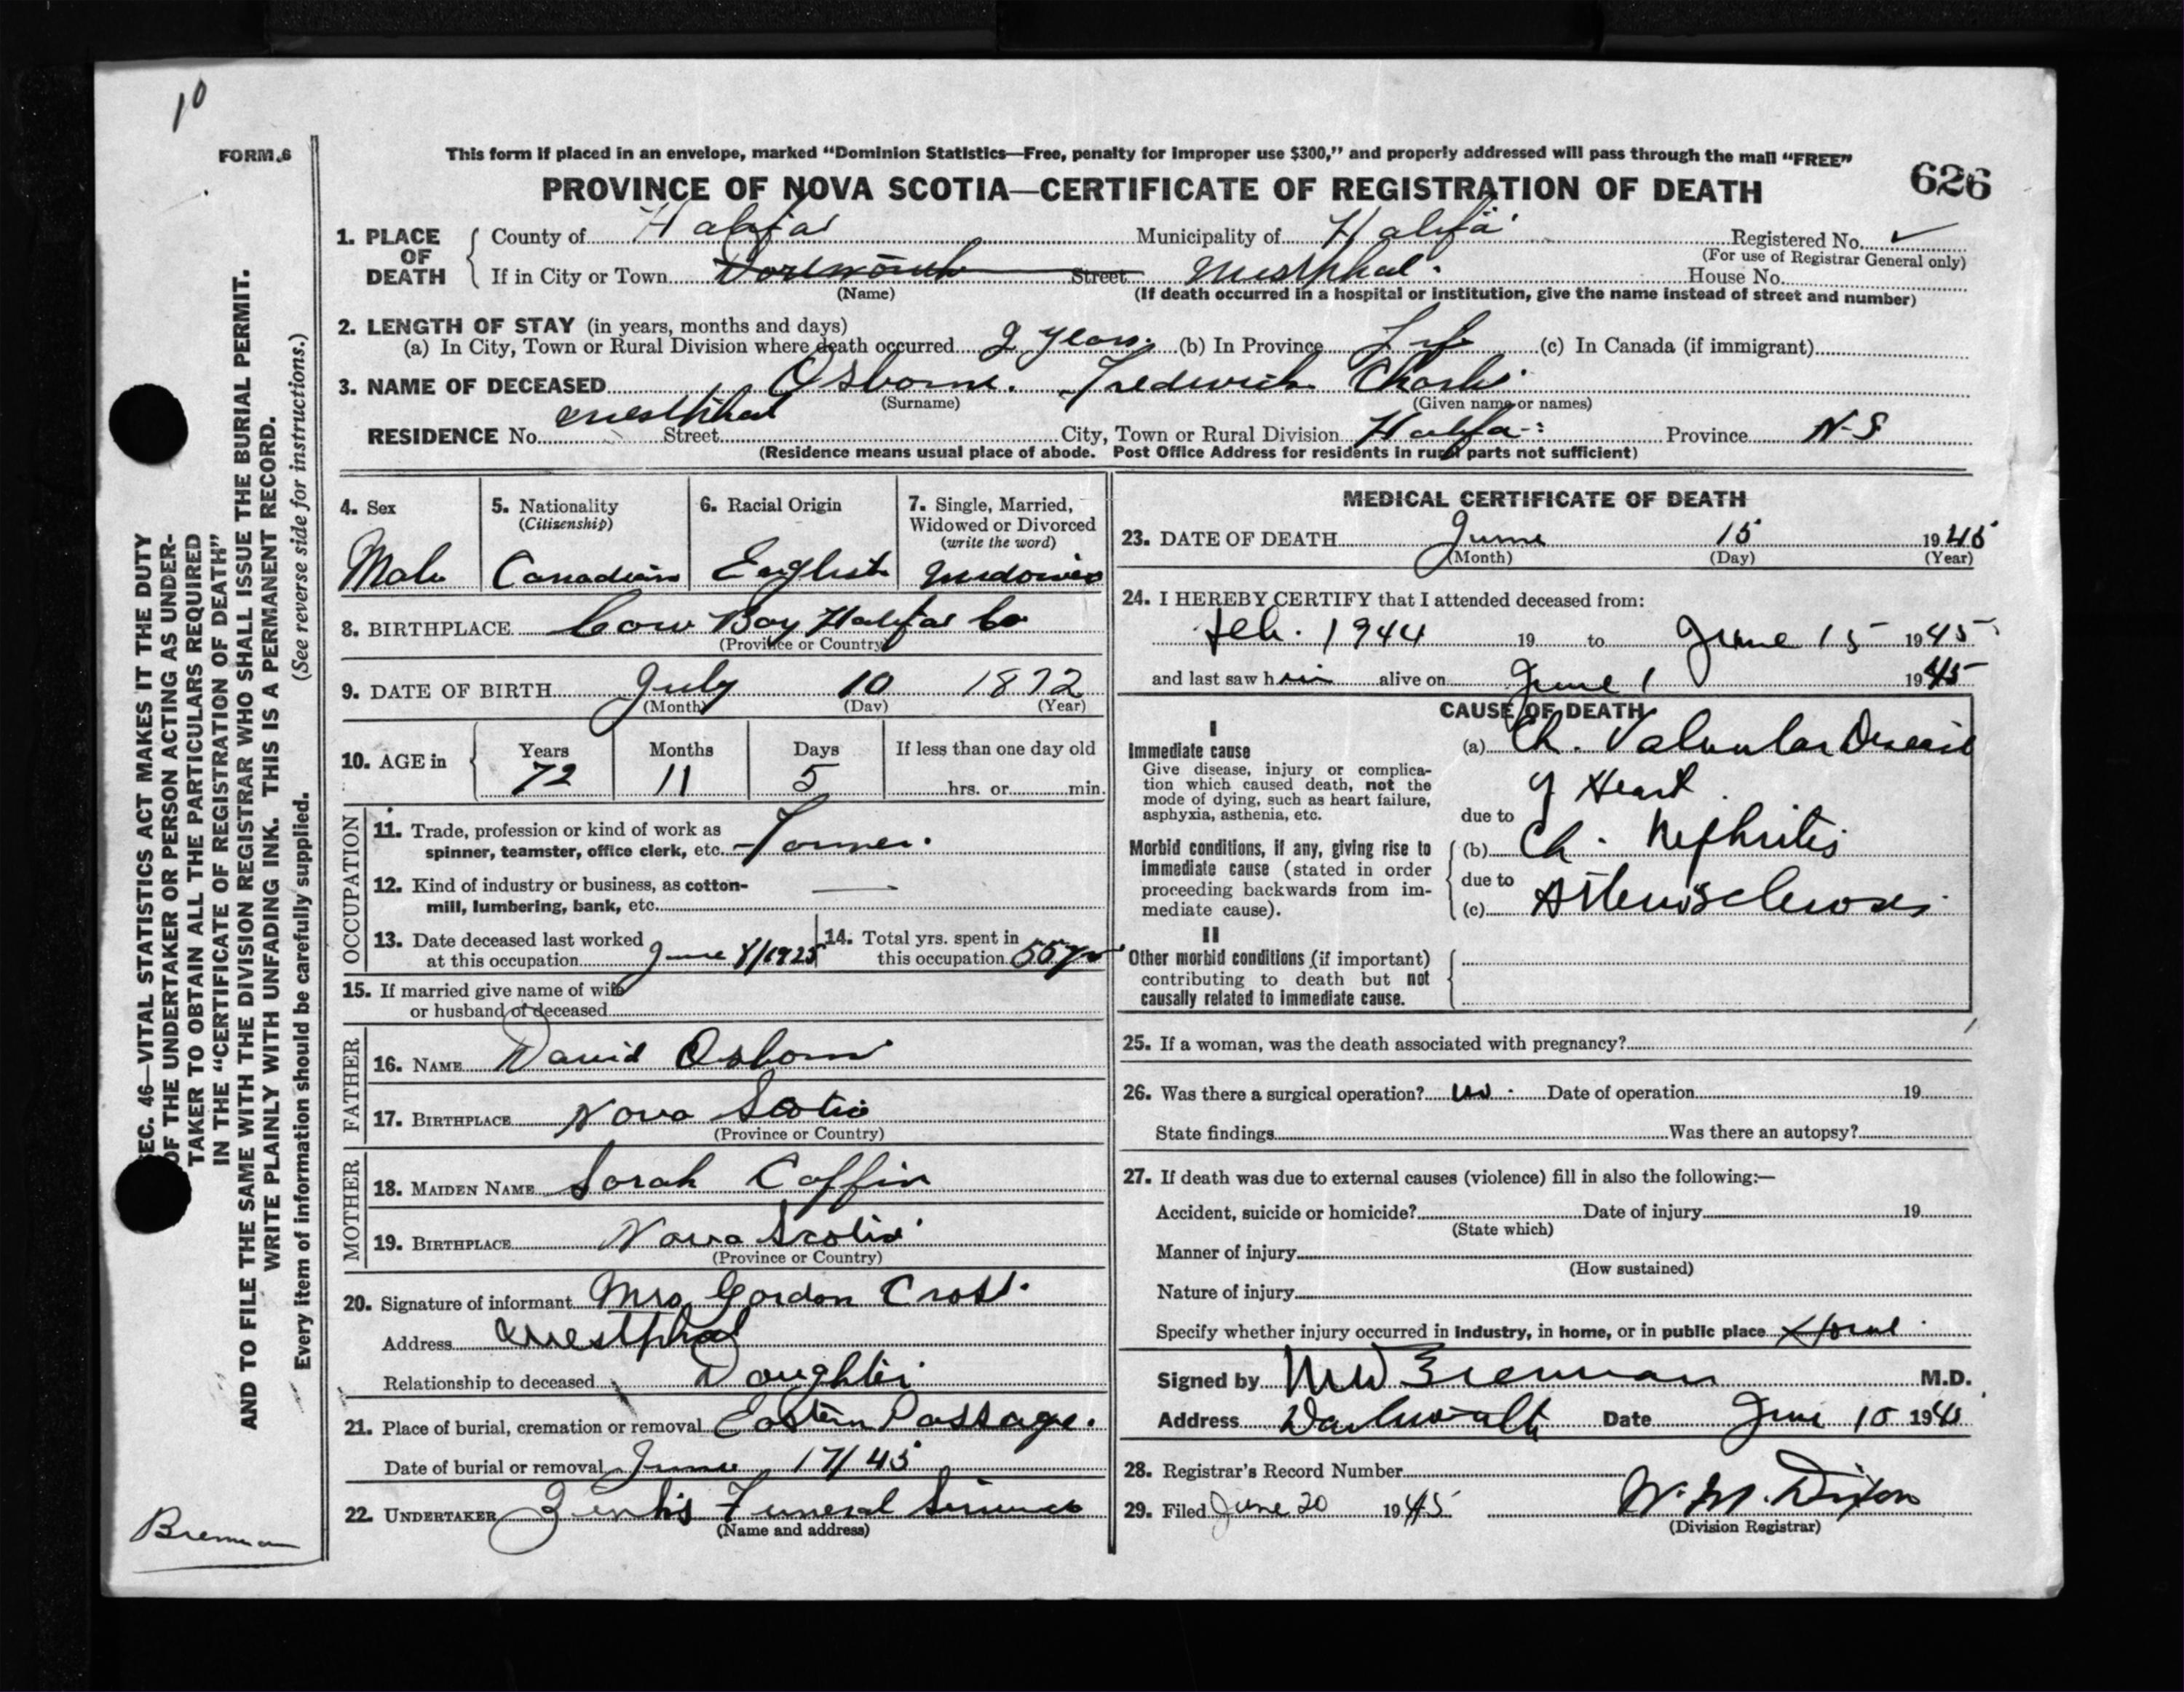 10
FORM 6
This form if placed in an envelope, marked “Dominion Statistics—Free, penalty for improper use $300,” and properly addressed will pass through the mail “FREE”
PROVINCE OF NOVA SCOTIA—CERTIFICATE OF REGISTRATION OF DEATH
626
1. PLACE OF DEATH
County of Halifax Municipality of Halifax Registered No. ✓
(For use of Registrar General only)
If in City or Town Dartmouth Street Westphal. House No.
(Name) (If death occurred in a hospital or institution, give the name instead of street and number)
2. LENGTH OF STAY (in years, months and days)
(a) In City, Town or Rural Division where death occurred 2 years. (b) In Province Life (c) In Canada (if immigrant)
3. NAME OF DECEASED Osborne. Frederick Charles
(Surname) (Given name or names)
RESIDENCE No. Westphal Street City, Town or Rural Division Halifax Province N-S
(Residence means usual place of abode. Post Office Address for residents in rural parts not sufficient)
4. Sex
Male
5. Nationality
(Citizenship)
Canadian
6. Racial Origin
English
7. Single, Married,
Widowed or Divorced
(write the word)
Widower
8. BIRTHPLACE Cow Bay Halifax Co
(Province or Country)
9. DATE OF BIRTH July 10 1872
(Month) (Day) (Year)
10. AGE in
Years Months Days If less than one day old
72 11 5 hrs. or min.
OCCUPATION
11. Trade, profession or kind of work as
spinner, teamster, office clerk, etc. Farmer.
12. Kind of industry or business, as cotton-
mill, lumbering, bank, etc. —
13. Date deceased last worked
at this occupation June 8/1925
14. Total yrs. spent in
this occupation 55 yr
15. If married give name of wife
or husband of deceased
FATHER
16. NAME David Osborn
17. BIRTHPLACE Nova Scotia
(Province or Country)
MOTHER
18. MAIDEN NAME Sarah Coffin
19. BIRTHPLACE Nova Scotia
(Province or Country)
20. Signature of informant Mrs Gordon Cross.
Address Westphal
Relationship to deceased Daughter
21. Place of burial, cremation or removal Eastern Passage.
Date of burial or removal June 17/45
22. UNDERTAKER Funeral Service
(Name and address)
MEDICAL CERTIFICATE OF DEATH
23. DATE OF DEATH June 15 1945
(Month) (Day) (Year)
24. I HEREBY CERTIFY that I attended deceased from:
Feb. 1944 19 to June 15 1945
and last saw him alive on June 1 1945
CAUSE OF DEATH
I
Immediate cause
Give disease, injury or complica-
tion which caused death, not the
mode of dying, such as heart failure,
asphyxia, asthenia, etc.
(a) Ch. Valvular Disease
of Heart
due to
Morbid conditions, if any, giving rise to
immediate cause (stated in order
proceeding backwards from im-
mediate cause).
(b) Ch. Nephritis
due to
(c) Arteriosclerosis
II
Other morbid conditions (if important)
contributing to death but not
causally related to immediate cause.
25. If a woman, was the death associated with pregnancy?
26. Was there a surgical operation? no. Date of operation 19
State findings Was there an autopsy?
27. If death was due to external causes (violence) fill in also the following:—
Accident, suicide or homicide? Date of injury 19
(State which)
Manner of injury
(How sustained)
Nature of injury
Specify whether injury occurred in industry, in home, or in public place Home
Signed by M W Brennan M.D.
Address Dartmouth Date June 15 1945
28. Registrar's Record Number
29. Filed June 20 1945 W. M. Dixon
(Division Registrar)
SEC. 46—VITAL STATISTICS ACT MAKES IT THE DUTY
OF THE UNDERTAKER OR PERSON ACTING AS UNDER-
TAKER TO OBTAIN ALL THE PARTICULARS REQUIRED
IN THE “CERTIFICATE OF REGISTRATION OF DEATH”
AND TO FILE THE SAME WITH THE DIVISION REGISTRAR WHO SHALL ISSUE THE BURIAL PERMIT.
WRITE PLAINLY WITH UNFADING INK. THIS IS A PERMANENT RECORD.
Every item of information should be carefully supplied. (See reverse side for instructions.)
Brennan